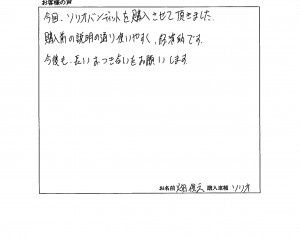 お客様の声
今回、ソリオバンディットを購入させて頂きました。
購入前の説明の通り使いやすく、経済的です。
今後も、長いおつき合いをお願いします
お名前 購入車種 ソリオ